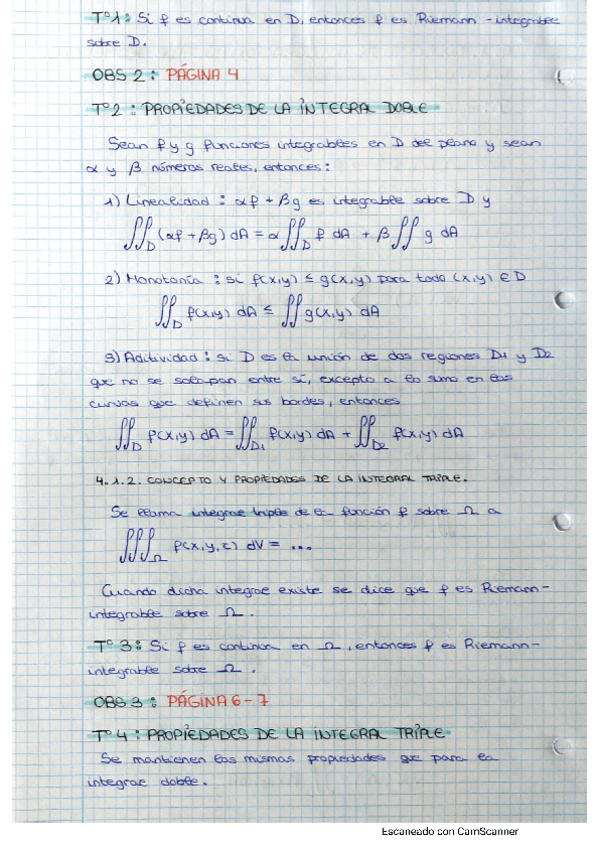 Tº1: Si f es continua en D, entonces f es Riemann-integrable
sobre D.
OBS 2: PÁGINA 4
Tº2: PROPIEDADES DE LA INTEGRAL DOBLE
Sean f y g funciones integrables en D del plano y sean
α y β números reales, entonces:
1) Linealidad: αf + βg es integrable sobre D y
∬_D (αf + βg) dA = α ∬_D f dA + β ∬ g dA
2) Monotonía: si f(x,y) ≤ g(x,y) para todo (x,y) ∈ D
∬_D f(x,y) dA ≤ ∬ g(x,y) dA
3) Aditividad: si D es la unión de dos regiones D1 y D2
que no se solapan entre sí, excepto a lo sumo en las
curvas que definen sus bordes, entonces
∬_D f(x,y) dA = ∬_D1 f(x,y) dA + ∬_D2 f(x,y) dA
4.1.2. CONCEPTO Y PROPIEDADES DE LA INTEGRAL TRIPLE.
Se llama integral triple de la función f sobre Ω a
∭_Ω f(x,y,z) dV = ...
Cuando dicha integral existe se dice que f es Riemann-
integrable sobre Ω.
Tº3: Si f es continua en Ω, entonces f es Riemann-
integrable sobre Ω.
OBS 3: PÁGINA 6-7
Tº4: PROPIEDADES DE LA INTEGRAL TRIPLE
Se mantienen las mismas propiedades que para la
integral doble.
Escaneado con CamScanner